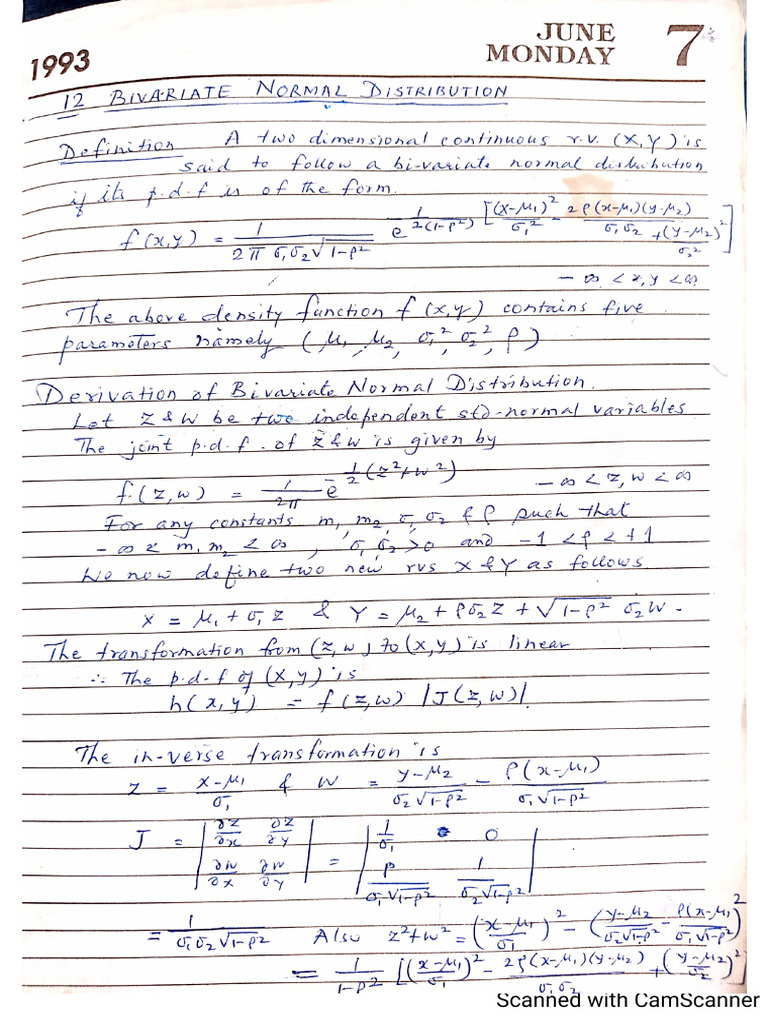 1993 JUNE MONDAY 7
12 BIVARIATE NORMAL DISTRIBUTION
Definition A two dimensional continuous r.v. (X,Y) is
said to follow a bi-variate normal distribution
if its p.d.f is of the form.
f(x,y) = 1/(2π σ₁σ₂√(1-ρ²)) e^{-1/(2(1-ρ²)) [(x-μ₁)²/σ₁² - 2ρ(x-μ₁)(y-μ₂)/(σ₁σ₂) + (y-μ₂)²/σ₂²]}
-∞ < x,y < ∞
The above density function f(x,y) contains five
parameters namely (μ₁, μ₂, σ₁², σ₂², ρ)
Derivation of Bivariate Normal Distribution.
Let Z & W be two independent std-normal variables
The joint p.d.f. of Z & W is given by
f(z,w) = 1/(2π) e^{-1/2(z²+w²)} -∞ < z,w < ∞
For any constants m₁, m₂, σ₁, σ₂ & ρ such that
-∞ < m₁, m₂ < ∞, σ₁, σ₂ > 0 and -1 < ρ < +1
We now define two new rvs X & Y as follows
X = μ₁ + σ₁ Z & Y = μ₂ + ρσ₂Z + √(1-ρ²) σ₂W.
The transformation from (z,w) to (x,y) is linear
∴ The p.d.f of (x,y) is
h(x,y) = f(z,w) |J(z,w)|.
The in-verse transformation is
Z = (x-μ₁)/σ₁ & W = (y-μ₂)/(σ₂√(1-ρ²)) - ρ(x-μ₁)/(σ₁√(1-ρ²))
J = |∂Z/∂x ∂Z/∂y; ∂W/∂x ∂W/∂y| = |1/σ₁ 0; ρ/(σ₁√(1-ρ²)) 1/(σ₂√(1-ρ²))|
= 1/(σ₁σ₂√(1-ρ²)) Also z²+w² = ((x-μ₁)/σ₁)² - ((y-μ₂)/(σ₂√(1-ρ²)) - ρ(x-μ₁)/(σ₁√(1-ρ²)))²
= 1/(1-ρ²) [((x-μ₁)/σ₁)² - 2ρ(x-μ₁)(y-μ₂)/(σ₁σ₂) + ((y-μ₂)/σ₂)²]
Scanned with CamScanner